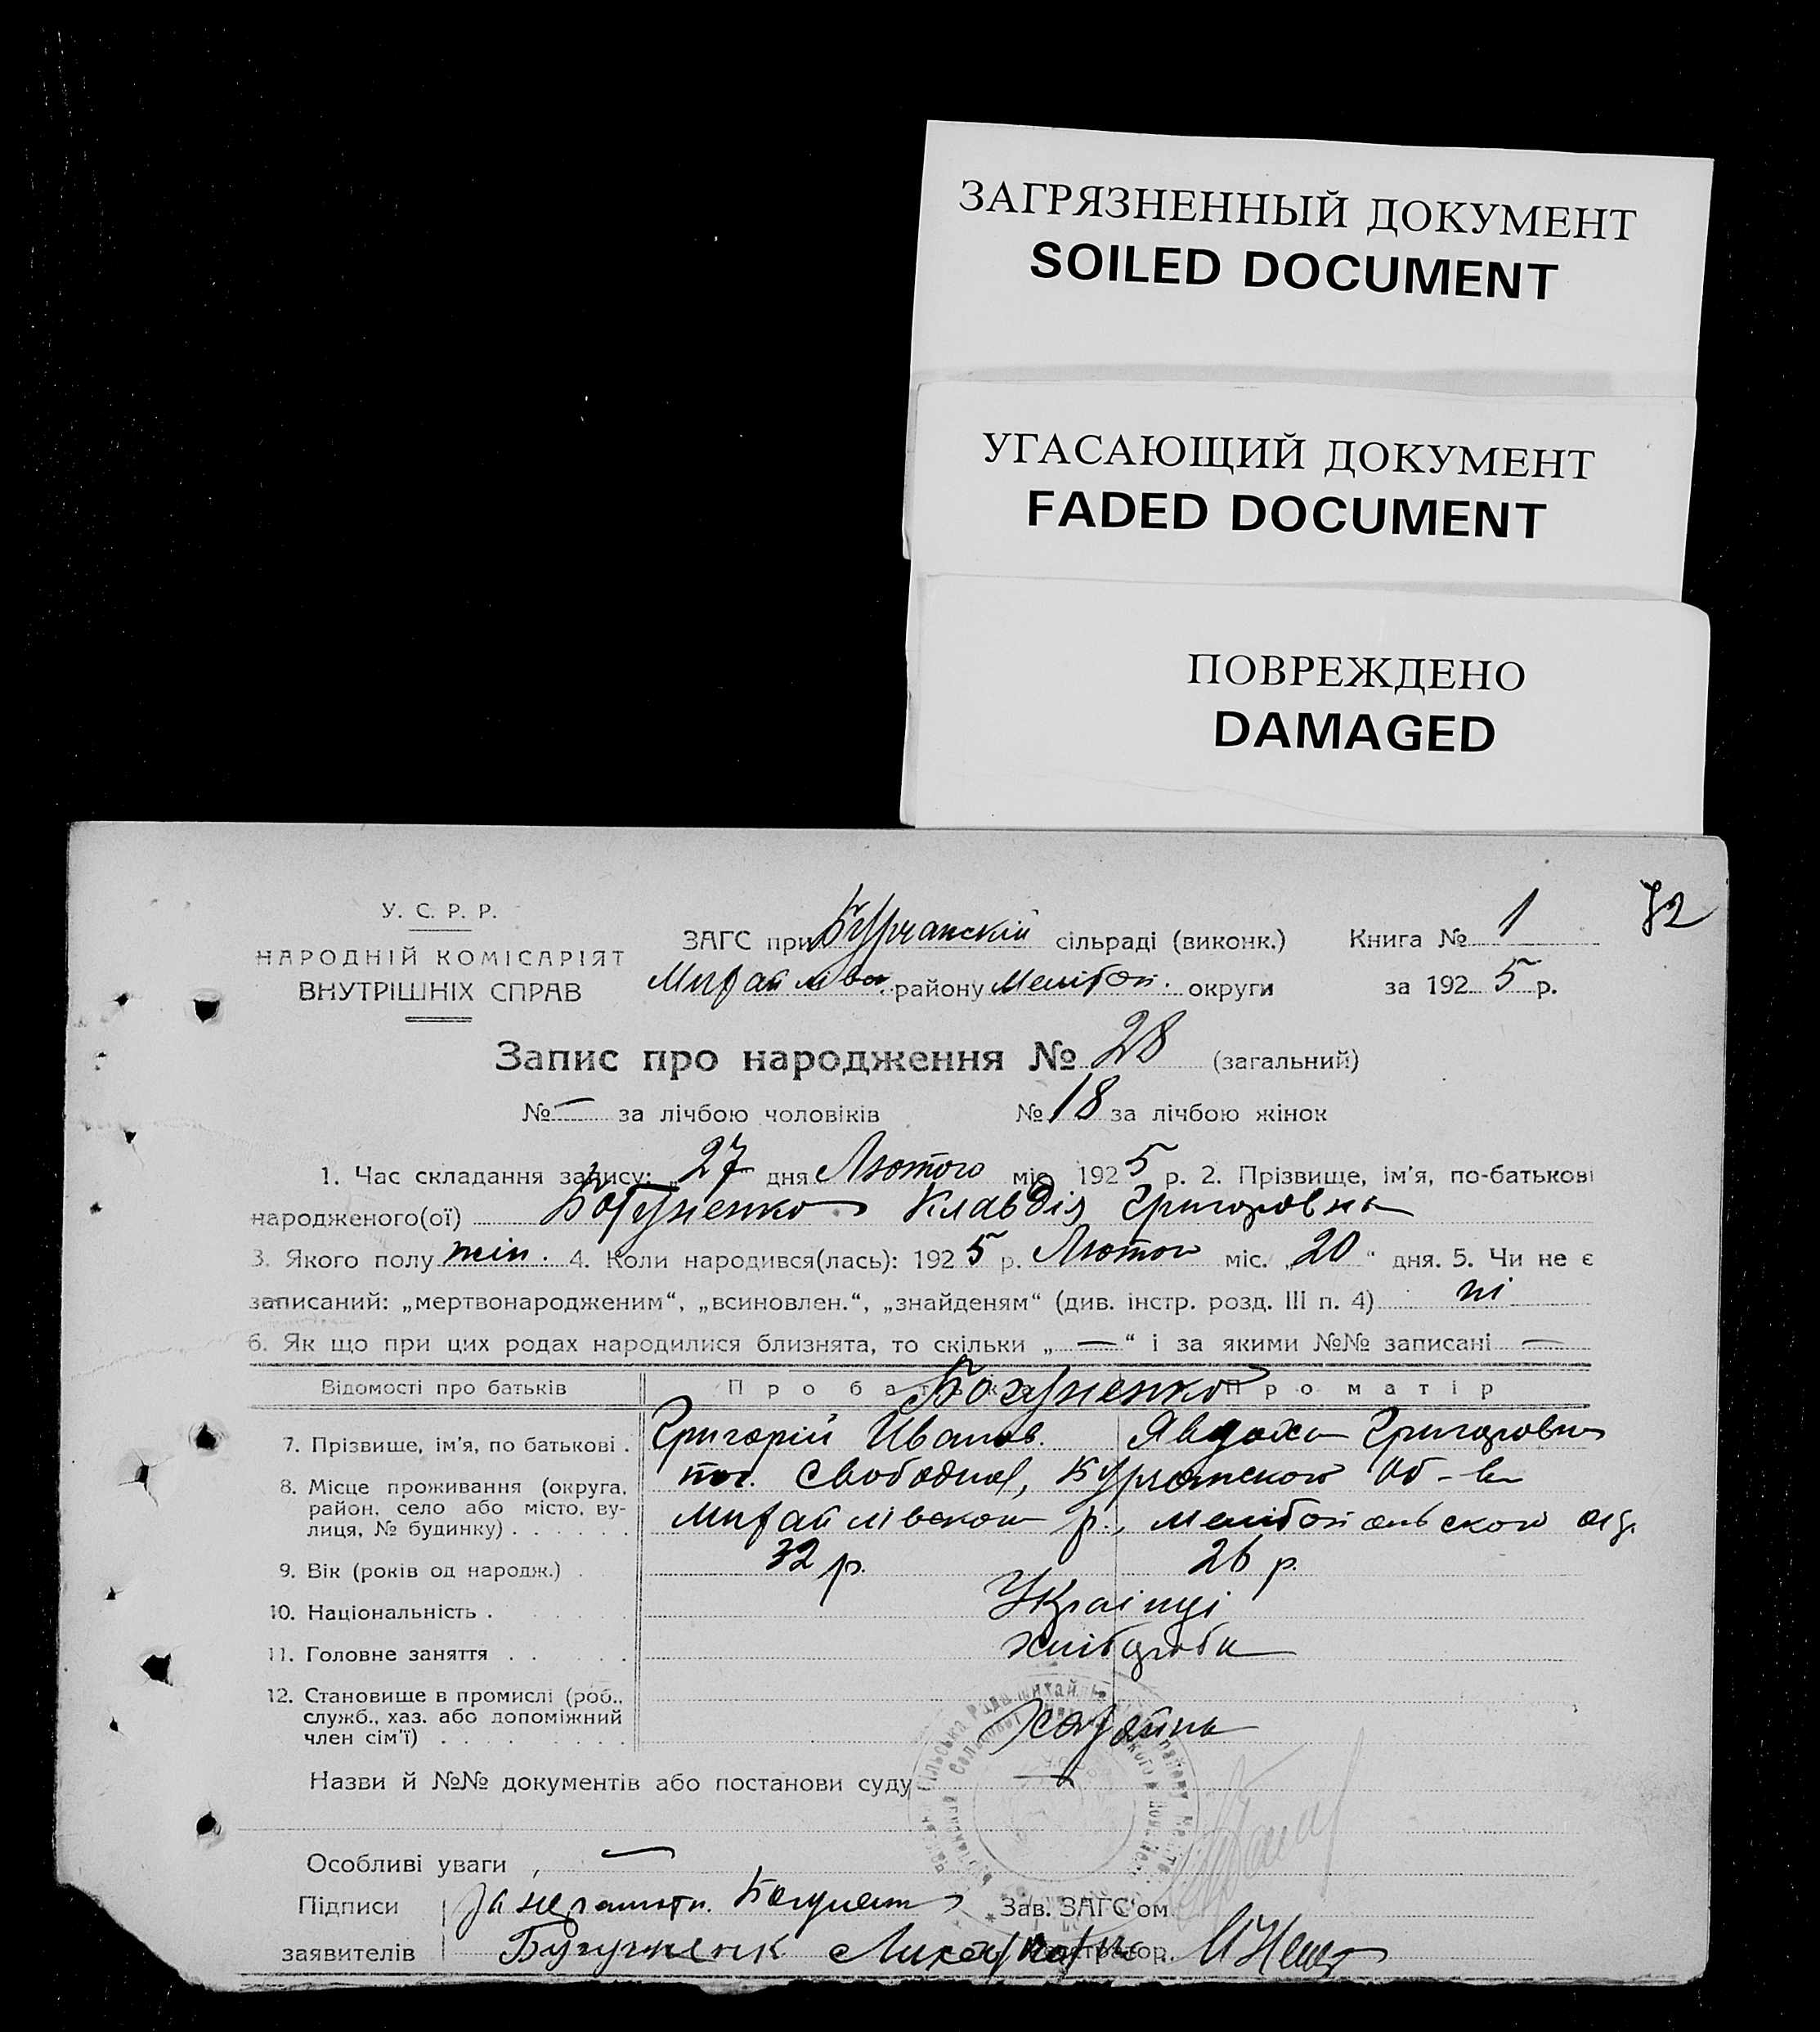 ЗАГРЯЗНЕННЫЙ ДОКУМЕНТ
SOILED DOCUMENT
УГАСАЮЩИЙ ДОКУМЕНТ
FADED DOCUMENT
ПОВРЕЖДЕНО
DAMAGED
72
У. С. Р. Р.
НАРОДНІЙ КОМІСАРІЯТ
ВНУТРІШНІХ СПРАВ
ЗАГС при Бурчанскій сільраді (виконк.) Книга № 1
Михайлівск. району Мелітоп. округи за 1925 р.
Запис про народження № 28 (загальний)
№ — за лічбою чоловіків № 18 за лічбою жінок
1. Час складання запису: „27" дня Лютого міс. 1925 р. 2. Прізвище, ім'я, по-батькові
народженого(ої) Богуненко Клавдія Григоровна
3. Якого полу жін. 4. Коли народився(лась): 1925 р. Лютого міс. „20" дня. 5. Чи не є
записаний: „мертвонародженим", „всиновлен.", „знайденям" (див. інстр. розд. III п. 4) ні
6. Як що при цих родах народилися близнята, то скільки „—" і за якими №№ записані —
Відомості про батьків Про батька Про матір
Богуненко
7. Прізвище, ім'я, по батькові . Григорій Иванов. Явдоха Григоровна
8. Місце проживання (округа, пос. Свободна,
район, село або місто, ву- Михайлівского р., Мелітопольского окр.
лиця, № будинку) . . . . . .
9. Вік (років од народж.) . 32 р. 26 р.
10. Національність . Українці
11. Головне заняття . . Хліборобн
12. Становище в промислі (роб.,
служб., хаз. або допоміжний Хазяїни
член сім'ї) . . .
Назви й №№ документів або постанови суду —
Особливі уваги , —
Підписи За неграмотн. Богуненко Зав. ЗАГС'ом
заявителів Реєстратор